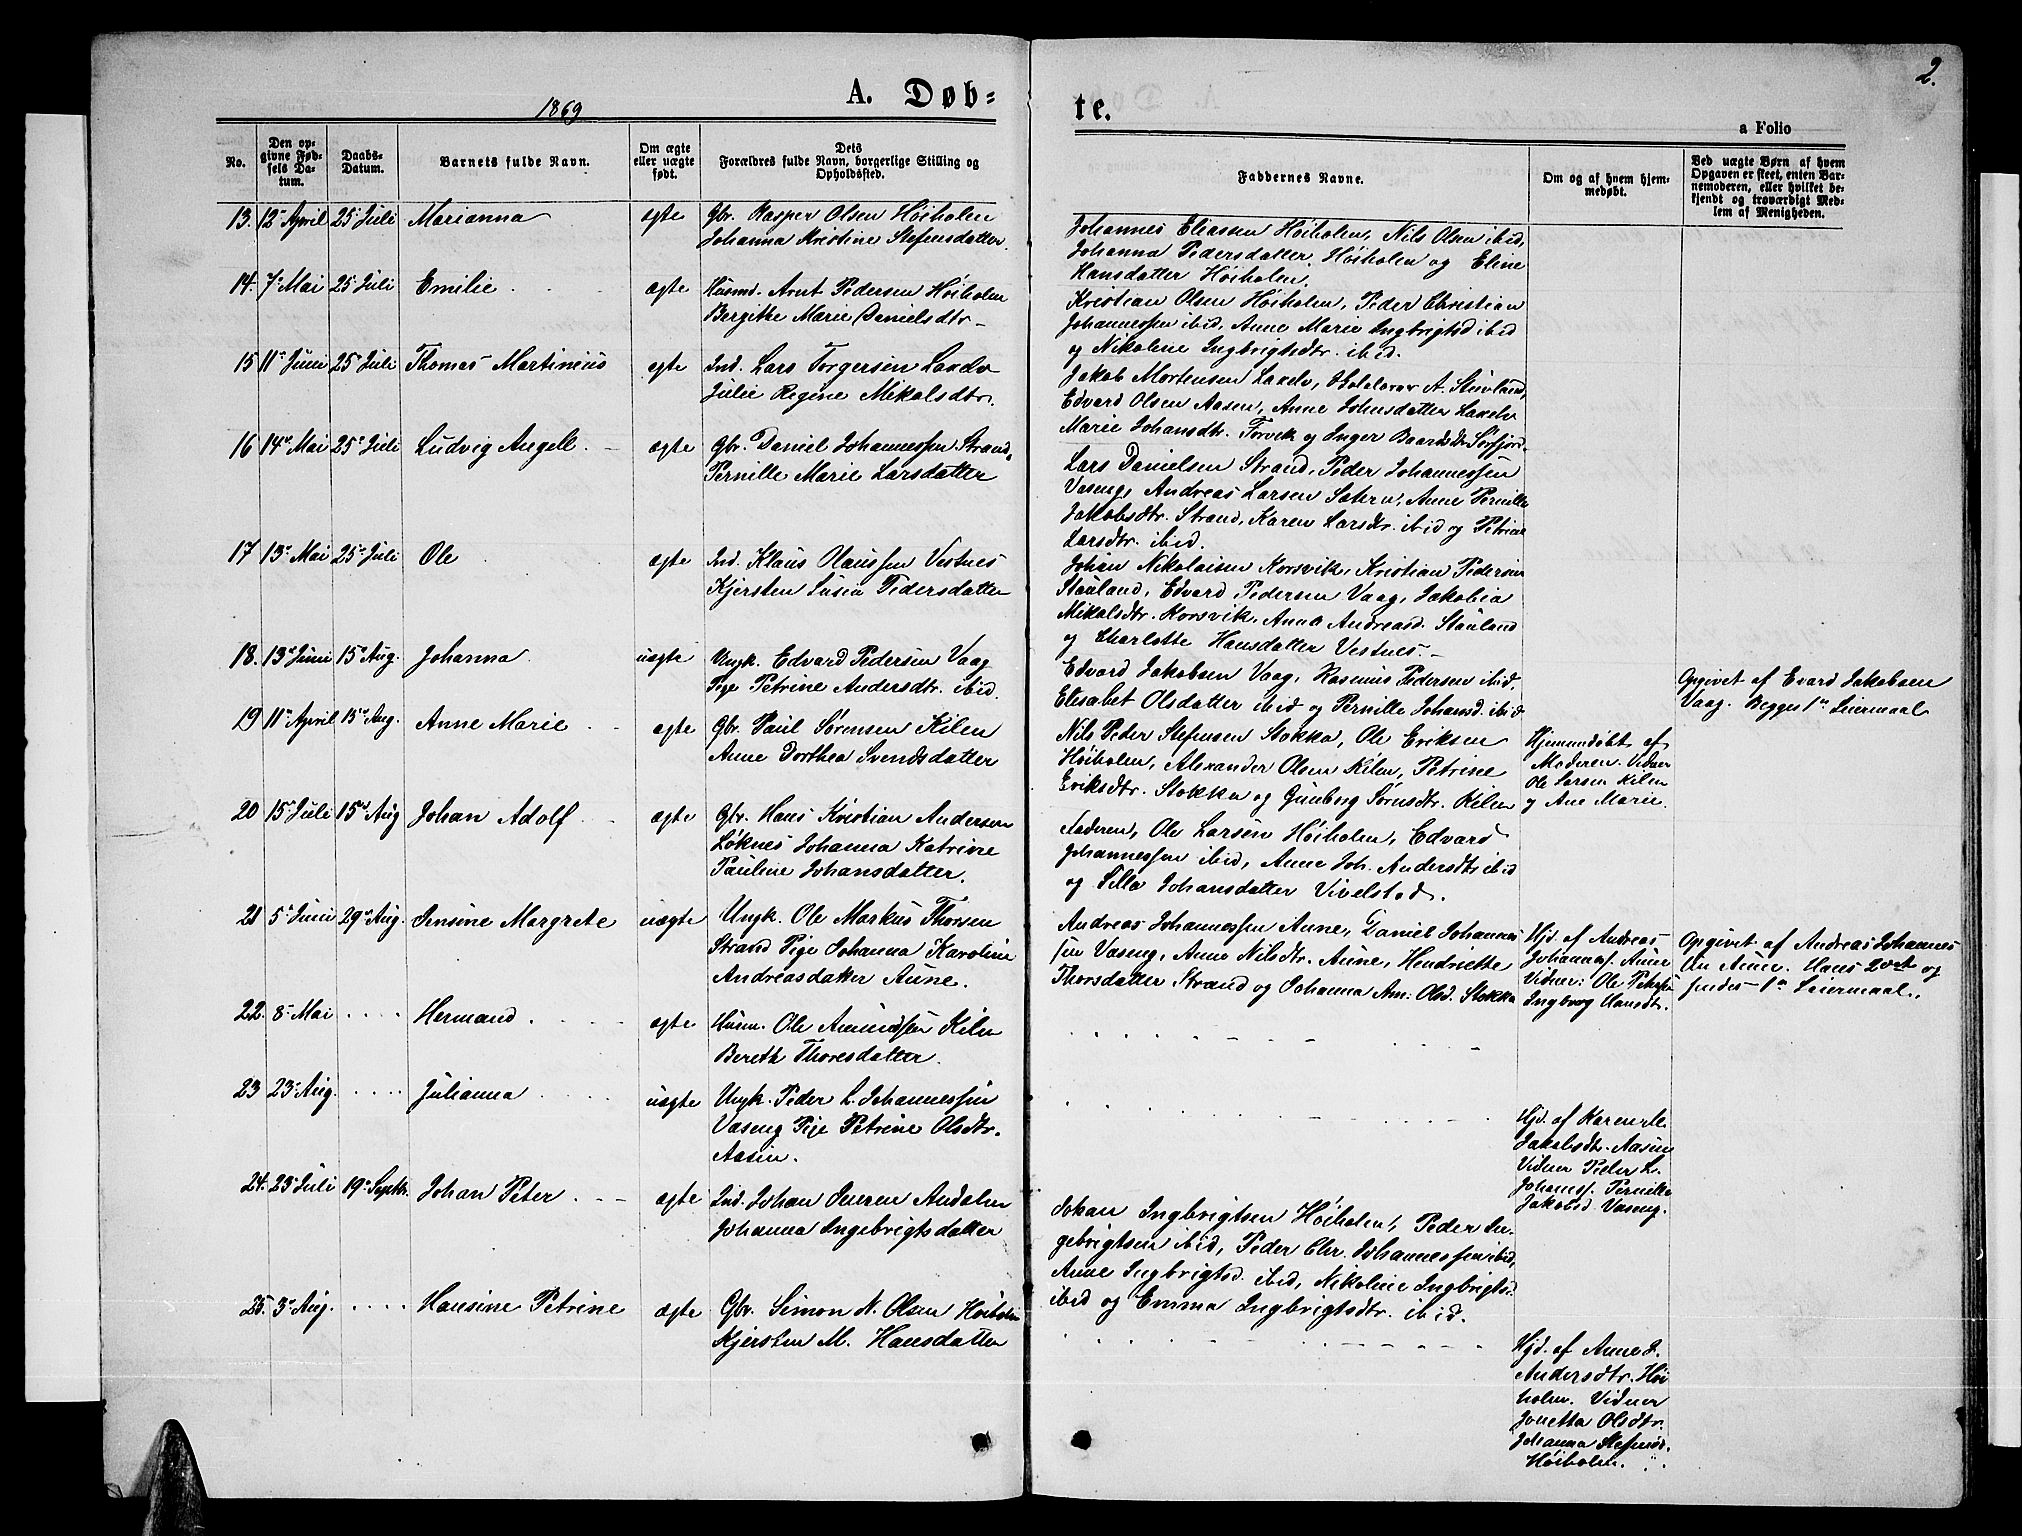 2.
1869
A. Døb=
te.
a Folio
No.
Den op-
givne Fød-
sels Da-
tum.
Daabs-
Datum.
Barnets fulde Navn.
Om ægte
eller uægte
født.
Dets
Forældres fulde Navn, borgerlige Stilling og
Opholdsted.
Faddernes Navne.
Om og af hvem hjem-
medøbt.
Ved uægte Børn af hvem
Opgaven er skeet, enten Bar-
nemoderen, eller hvilket be-
kjendt og troværdigt Med-
lem af Menigheden.
13. 12te April 25de Juli Marianna ægte Gbr. Kasper Olsen Høiholm
Johanna Kristine Stefensdatter.
Johannes Eliassen Høiholm, Nils Olsen ibid,
Johanna Pedersdatter Høiholm og Eline
Hansdatter Høiholm.
14. 7de Mai 25de Juli Emilie ægte Husmd. Arnt Pedersen Høiholm
Bergithe Marie Danielsdtr.
Kristian Olsen Høiholm, Peder Christian
Johannessen ibid, Anne Marie Ingbrigtsd ibid
og Nikoline Ingbrigtsdtr. ibid.
15 11te Juni 25de Juli Thomas Martinius ægte Ind. Lars Torgersen Laxelv
Julie Regine Mikalsdtr.
Jakob Mortensen Laxelv, A.
Edvard Olsen Aasen, Anne Johnsdatter Laxelv
Marie Johansdtr. Torvik og Inger Baardsdtr Sørfjord
16 14de Mai 25de Juli Ludvig Angell ægte Gbr. Daniel Johannessen Strand,
Pernille Marie Larsdatter
Lars Danielsen Strand, Peder Johannessen
Vaseng, Andreas Larsen Sætern, Anne Pernille
Jakobsdtr. Strand, Karen Larsdtr. ibid og Petrine
Larsdtr. ibid.
17 13de Mai 25de Juli Ole ægte Ind. Klaus Olaussen Vestnes
Kjersten Susia Pedersdatter
Johan Nikolaisen Korsvik, Kristian Pedersen
Stauland, Edvard Pedersen Vaag, Jakobia
Mikalsdtr. Korsvik, Anna Andreasd. Stauland
og Charlotte Hansdatter Vestnes.
18. 13de Juni 15de Aug. Johanna uægte Ungk. Edvard Pedersen Vaag
Pige Petrine Andersdtr. ibid.
Edvard Jakobsen Vaag, Rasmus Pedersen ibid,
Elisabet Olsdatter ibid og Pernille Johansd. ibid
Opgivet af Evard Jakobsen
Vaag. Begges 1ste Leiermaal
19 11te April 15de Aug. Anne Marie ægte Gbr. Paul Sørensen Kilen
Anne Dorthea Svendsdatter
Nils Peder Stefensen Stokka, Ole Eriksen
Høiholm, Alexander Olsen Kilen, Petrine
Eriksdtr. Stokka og Gunborg Sørnsdtr. Kilen
Hjemmedøbt af
Moderen. Vidner
Ole Larsen Kilen
og Ane Marie.
20 15de Juli 15de Aug Johan Adolf ægte Gbr. Hans Kristian Andersen
Løknes Johanna Katrine
Pauline Johansdatter.
Faderen, Ole Larsen Høiholm, Edvard
Johannessen ibid, Anne Joh. Andersdtr ibid
og Silla Johansdatter Vivelstad.
21 5te Juni 29de Aug. Jensine Margrete uægte Ungk. Ole Markus Thorsen
Strand Pige Johanna Karoline
Andreasdatter Aune.
Andreas Johannessen Aune, Daniel Johannes
sen Vaseng, Anne Nilsdtr. Aune, Hendriette
Thorsdatter Strand og Johanna Am: Olsd. Stokka
Hjd. af Andreas
Johanness. Aune
Vidner: Ole Petersen
Ingborg Hansdtr.
Opgivet af Andreas Johannes
sen Aune. Hans 2det og
hendes 1ste Leiermaal.
22. 8de Mai Hermand ægte Husm. Ole Amundsen Kilen
Bereth Thoresdatter.
23 23de Aug. Julianna uægte Ungk. Peder L. Johannessen
Vaseng Pige Petrine Olsdtr.
Aasen.
Hjd. af Karen M.
Jakobsdtr. Aasen
Vidner Peder L.
Johanness. Pernille
Jakobsd. Vaseng.
24. 23de Juli 19de Septbr. Johan Peter ægte Ind. Johan Jensen Andalen
Johanna Ingebrigtsdatter
Johan Ingbrigtsen Høiholm, Peder In-
gebrigtsen ibid, Peder Chr. Johannessen ibid,
Anne Ingbrigtsd. ibid, Nikoline Ingbrigtsd.
ibid og Emma Ingbrigtsdtr. ibid.
25. 3de Aug. Hansine Petrine ægte Gbr. Simon N. Olsen Høiholm
Kjersten M. Hansdatter
Hjd. af Anne J.
Andersdtr. Høi
holm. Vidner
Jonetta Olsdtr.
Johanna Stefensd.
Høiholm.